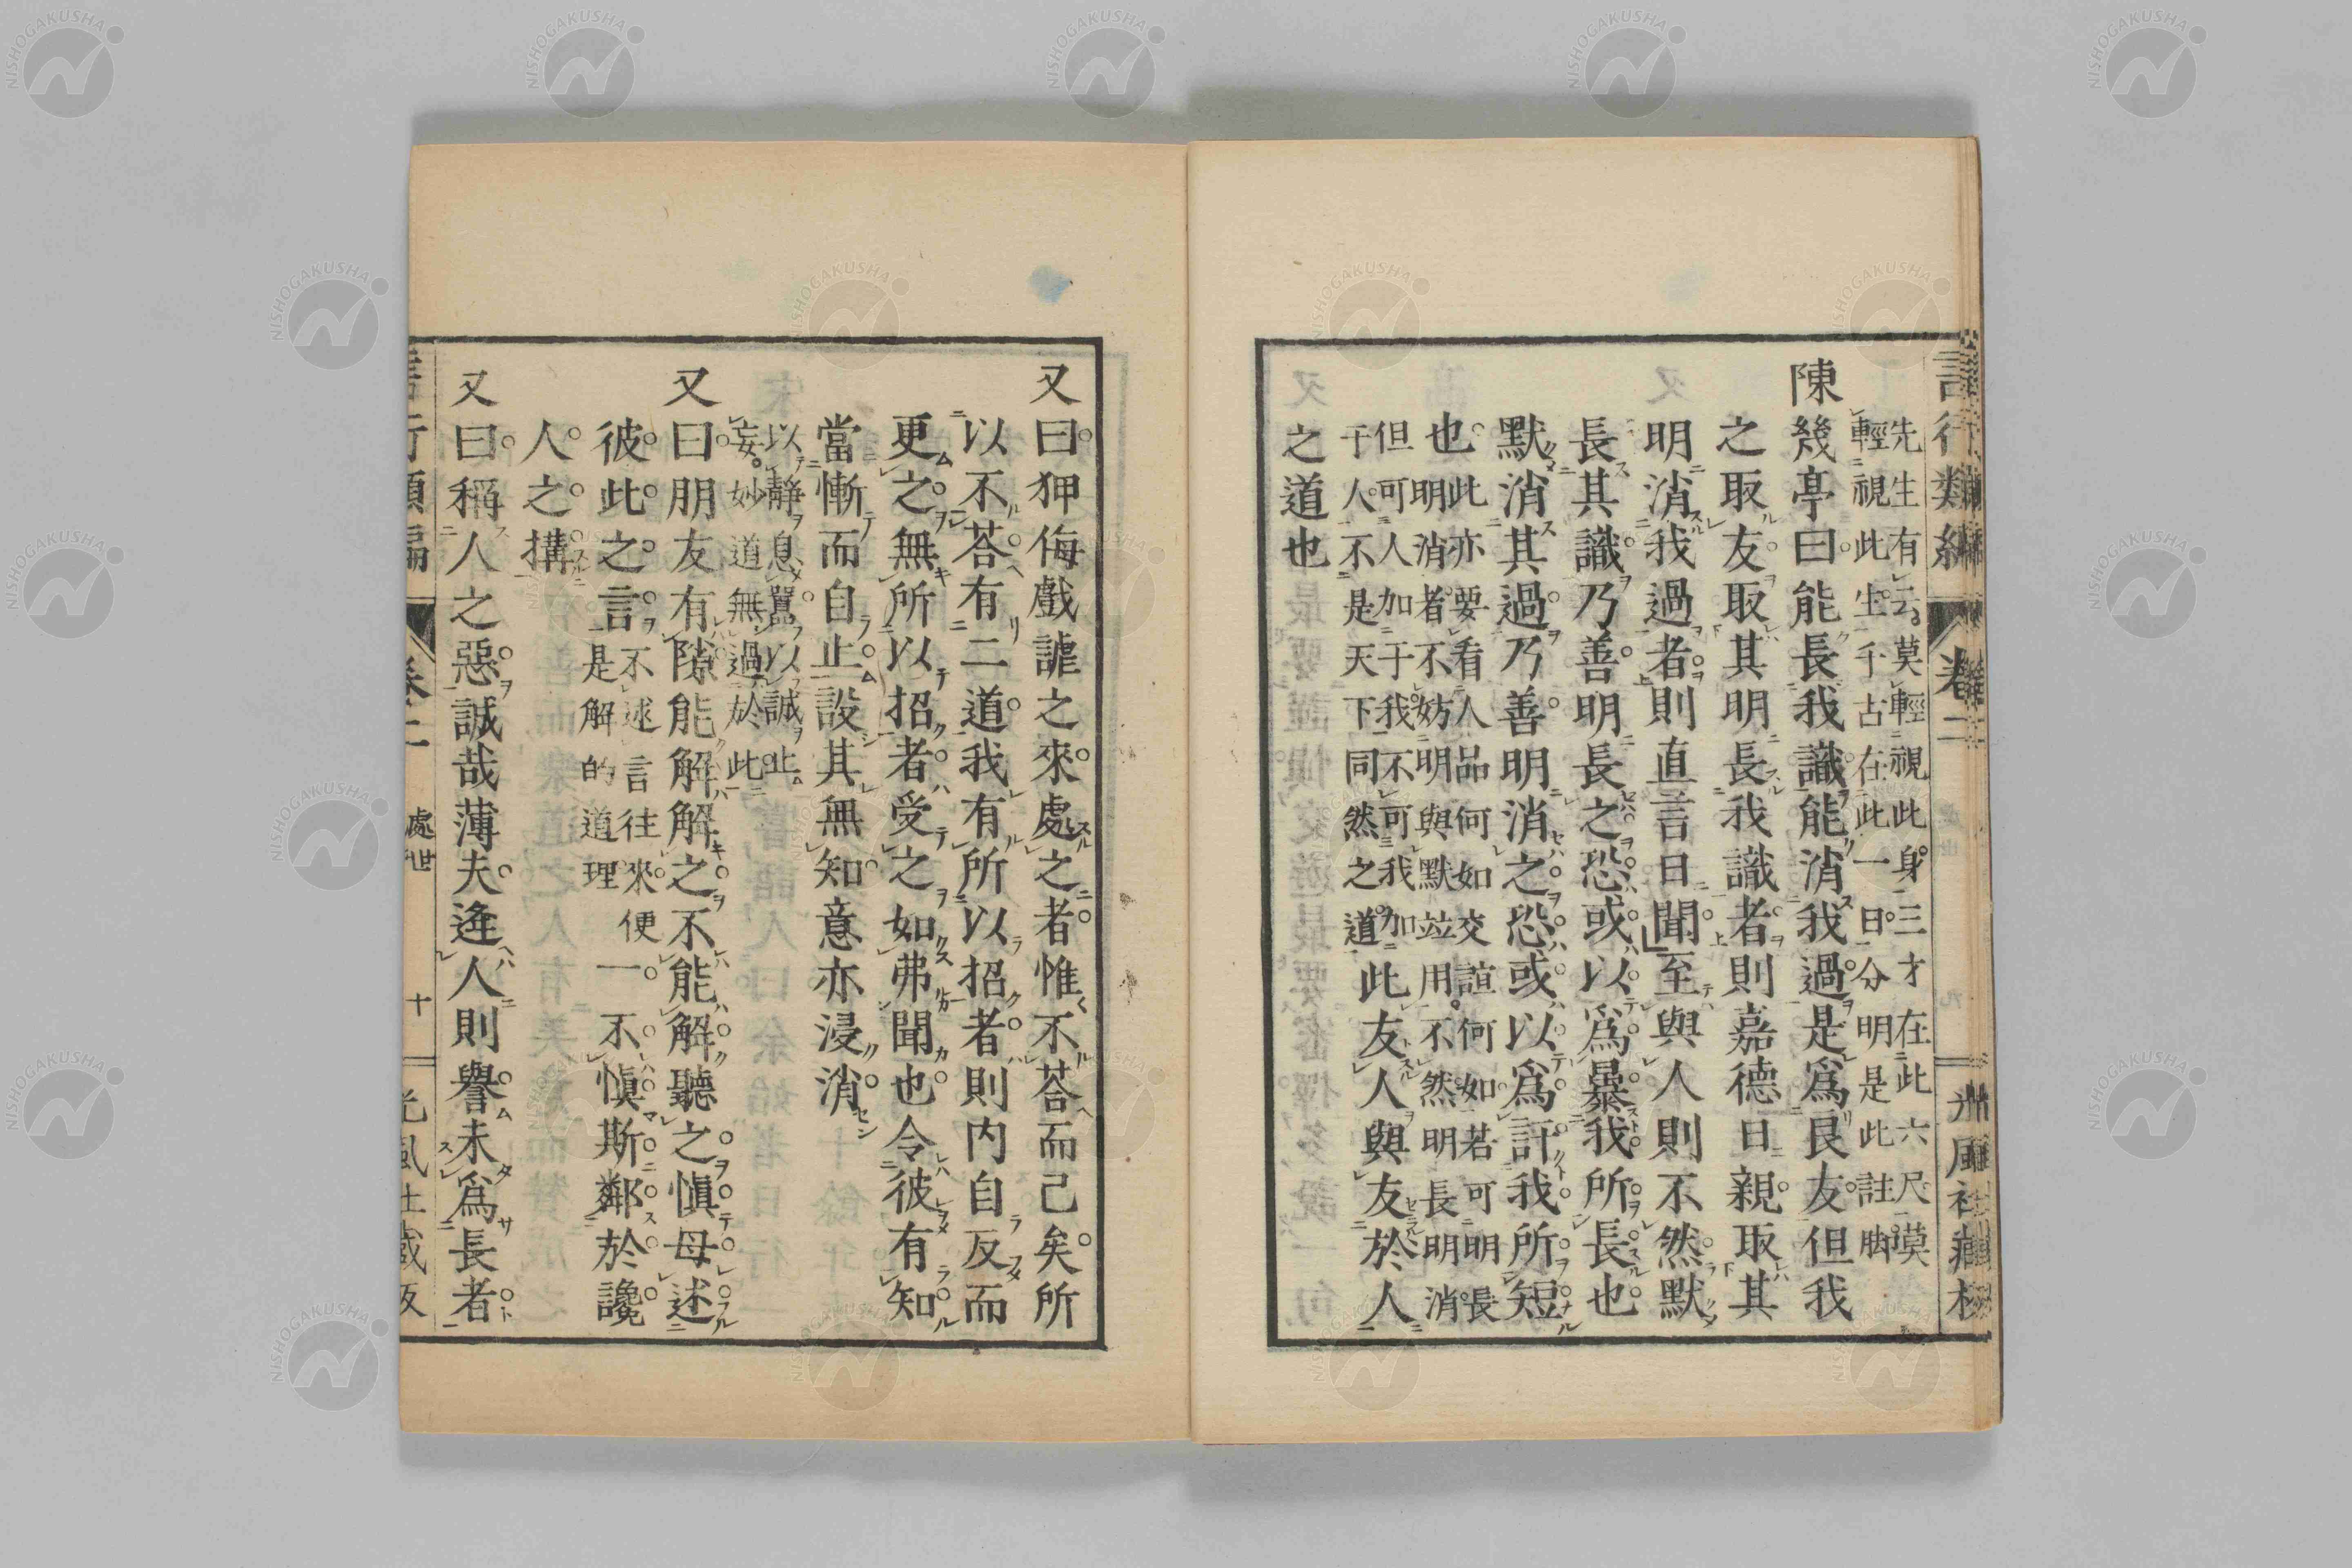 言行類編 卷二
先生有云莫輕視此身三才在此六尺莫
輕視此生千古在此一日分明是此註脚
陳幾亭曰能長我識能消我過是爲良友但我
之取友取其明長我識者則嘉德日親取其
明消我過者則直言日聞至與人則不然默
長其識乃善明長之恐或以爲暴我所長也
默消其過乃善明消之恐或以爲訐我所短
也
此亦要看人品何如交誼何如若可明長
明消者不妨明與默竝用不然明長明消
但可人加于我不可我加
于人不是天下同然之道
此友人與友於人
之道也
又曰狎侮戲謔之來處之者惟不荅而已矣所
以不荅有二道我有所以招者則內自反而
更之無所以招者受之如弗聞也令彼有知
當慚而自止設其無知意亦浸消
以靜息囂以誠止
妄妙道無過於此
又曰朋友有隙能解解之不能解聽之愼母述
彼此之言
不述言往來便一
是解的道理
不愼斯鄰於讒
人之搆
又曰稱人之惡誠哉薄夫逄人則譽未爲長者
處世 十
NISHOGAKUSHA